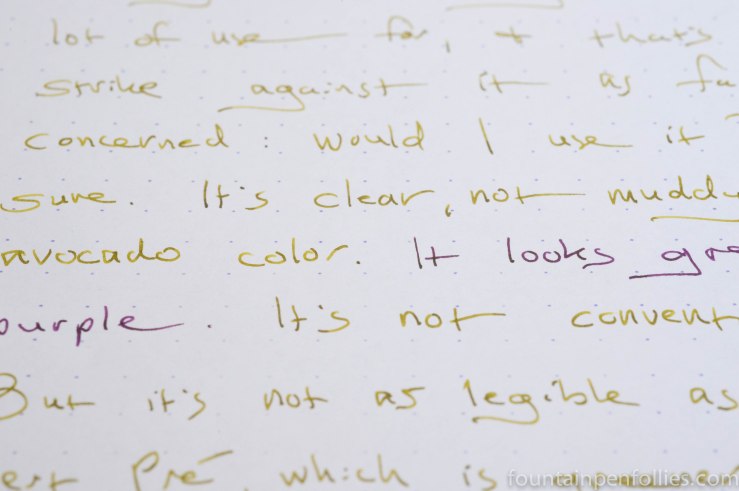 lot of use for, + that's
strike against it as fa
concerned: would I use it
sure. It's clear, not mudd
avocado color. It looks gre
purple. It's not convent
But it's not as legible as
ert Pré, which is
fountainpenfollies.com